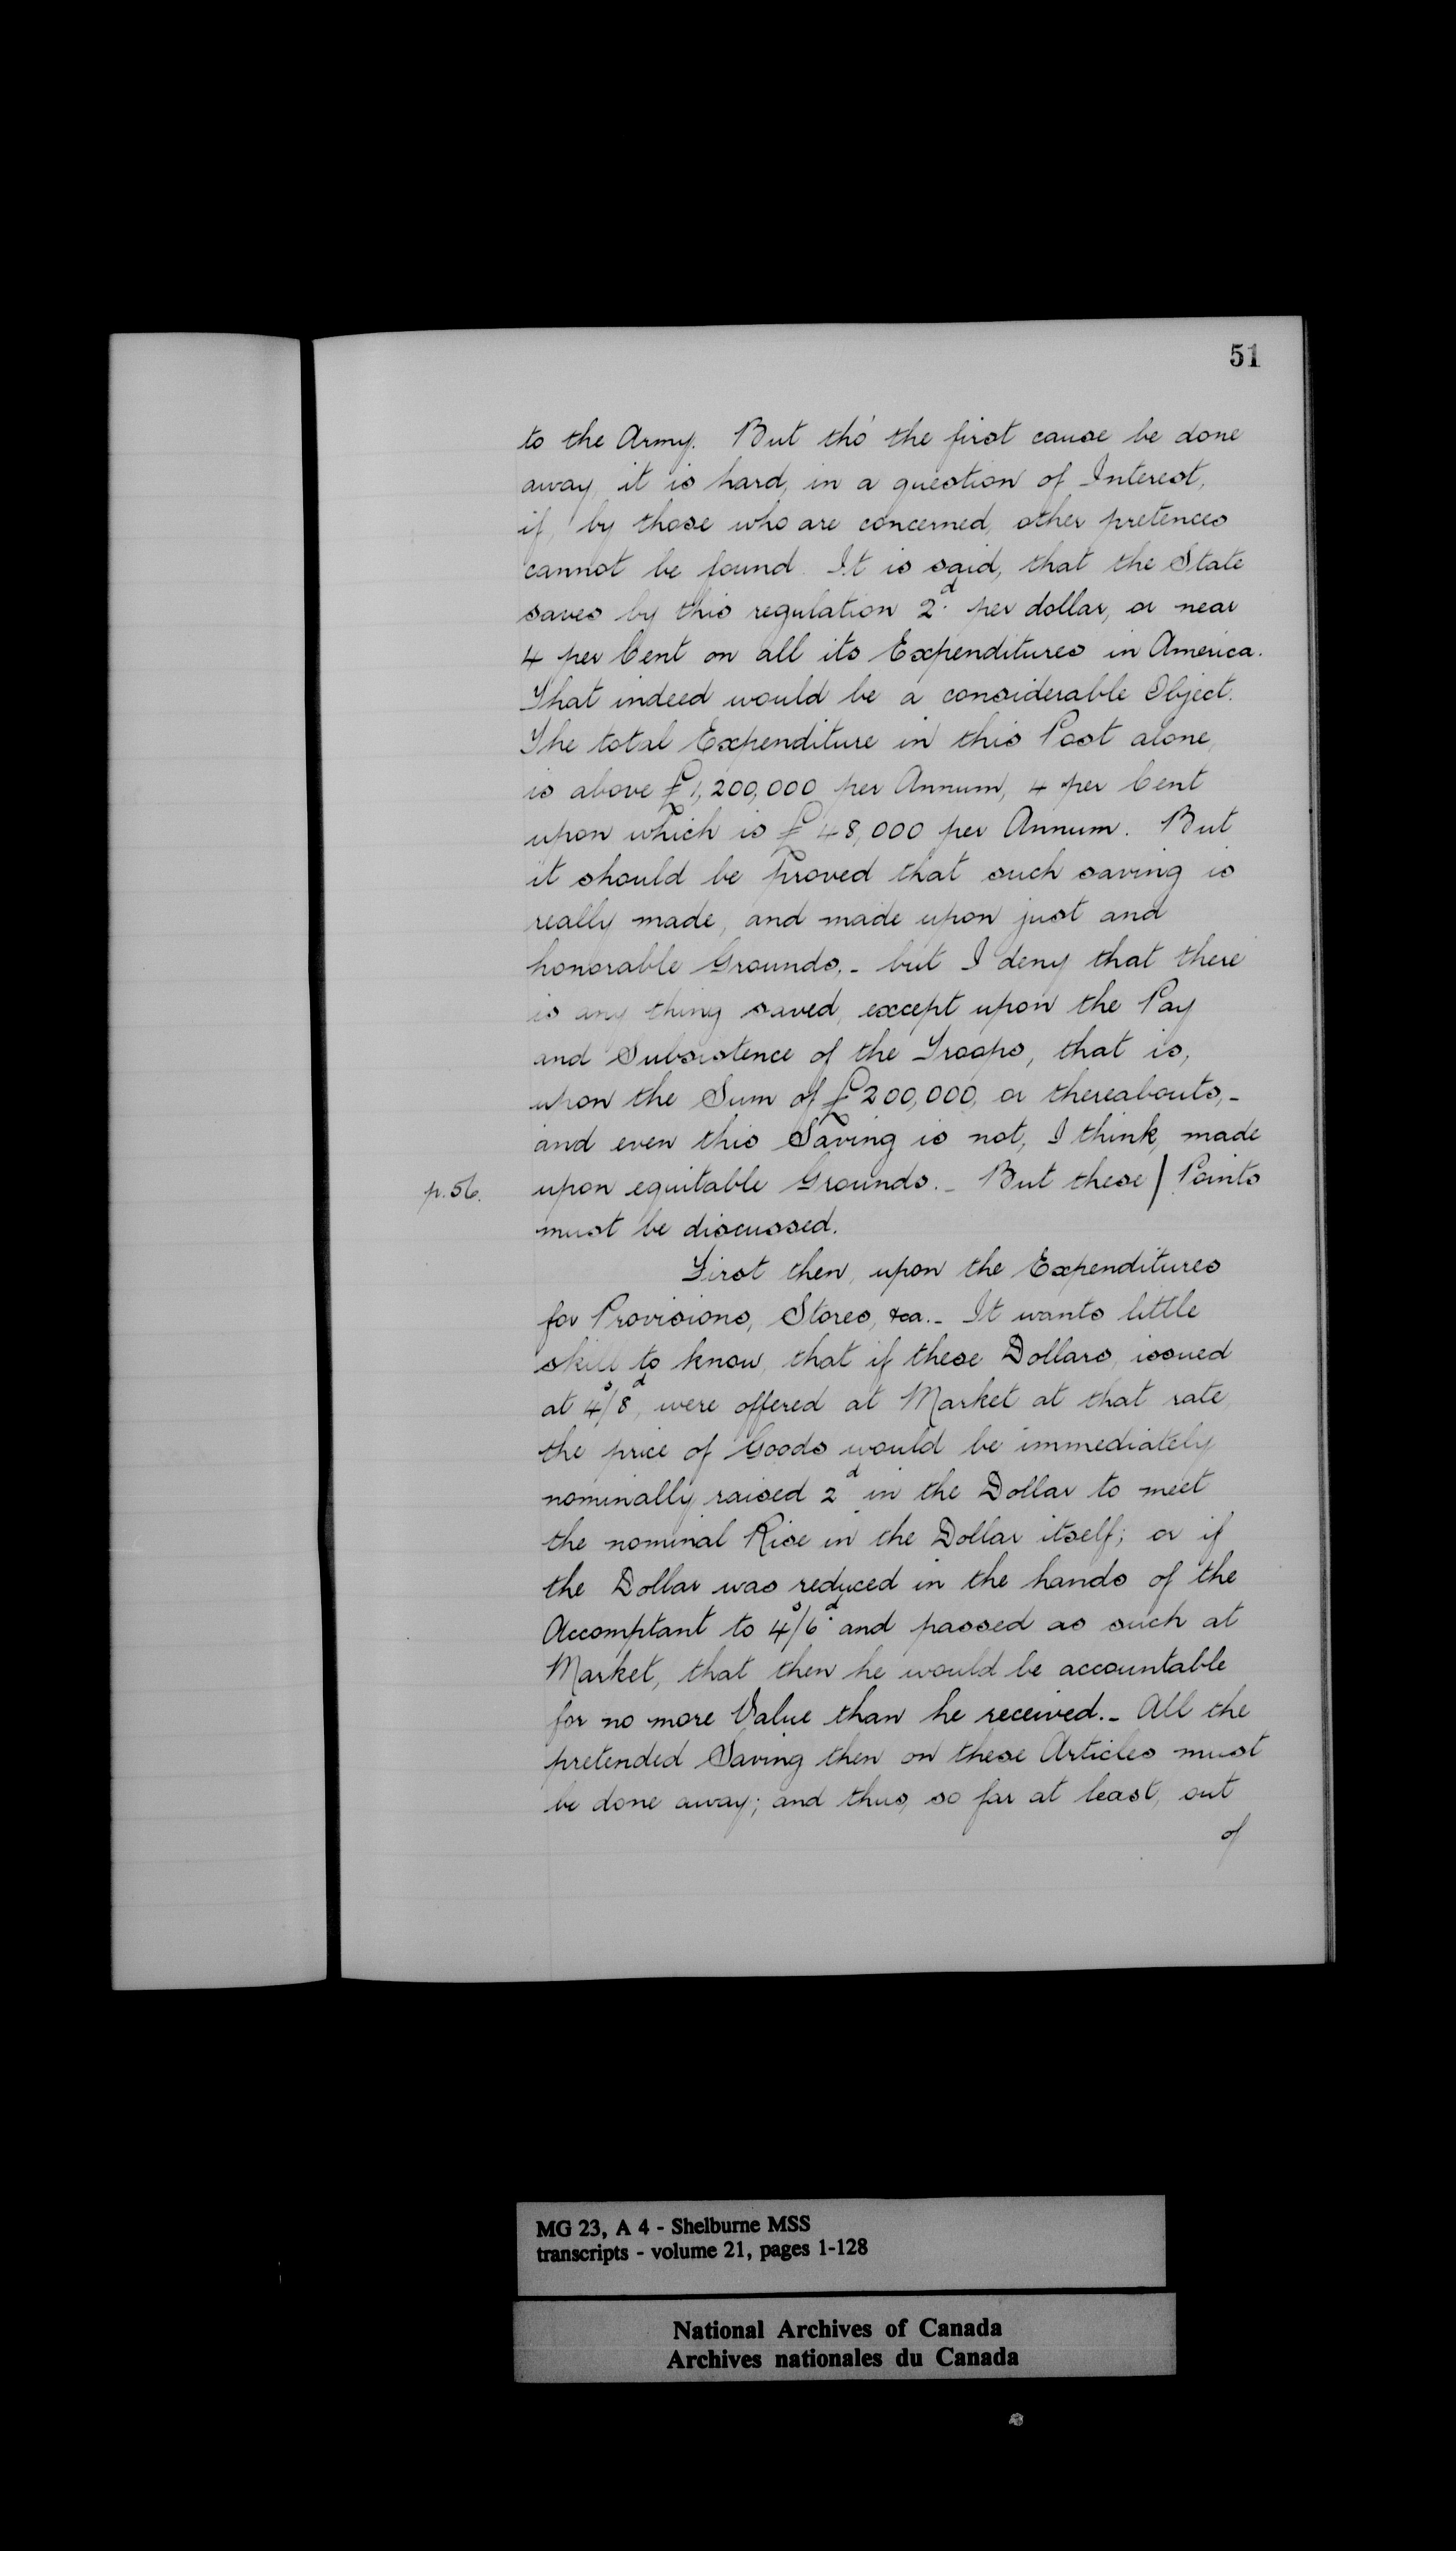 51
to the Army. But tho' the first cause be done
away, it is hard, in a question of Interest,
if, by those who are concerned, other pretences
cannot be found. It is said, that the State
saves by this regulation 2d. per dollar, or near
4 per Cent on all its Expenditures in America.
That indeed would be a considerable Object.
The total Expenditure in this Post alone,
is above £1,200,000 per Annum, 4 per Cent
upon which is £48,000 per Annum. But
it should be proved that such saving is
really made, and made upon just and
honorable Grounds,- but I deny that there
is any thing saved, except upon the Pay
and Subsistence of the Troops, that is,
upon the Sum of £200,000, or thereabouts,-
and even this Saving is not, I think, made
p.56. upon equitable Grounds.- But these / Points
must be discussed.
First then, upon the Expenditures
for Provisions, Stores, &ca.- It wants little
skill to know, that if these Dollars, issued
at 4s/8d, were offered at Market at that rate,
the price of Goods would be immediately
nominally raised 2d in the Dollar to meet
the nominal Rise in the Dollar itself; or if
the Dollar was reduced in the hands of the
Accomptant to 4s/6d. and passed as such at
Market, that then he would be accountable
for no more Value than he received.- All the
pretended Saving then on these Articles must
be done away; and thus, so far at least, out
of
MG 23, A 4 - Shelburne MSS
transcripts - volume 21, pages 1-128
National Archives of Canada
Archives nationales du Canada